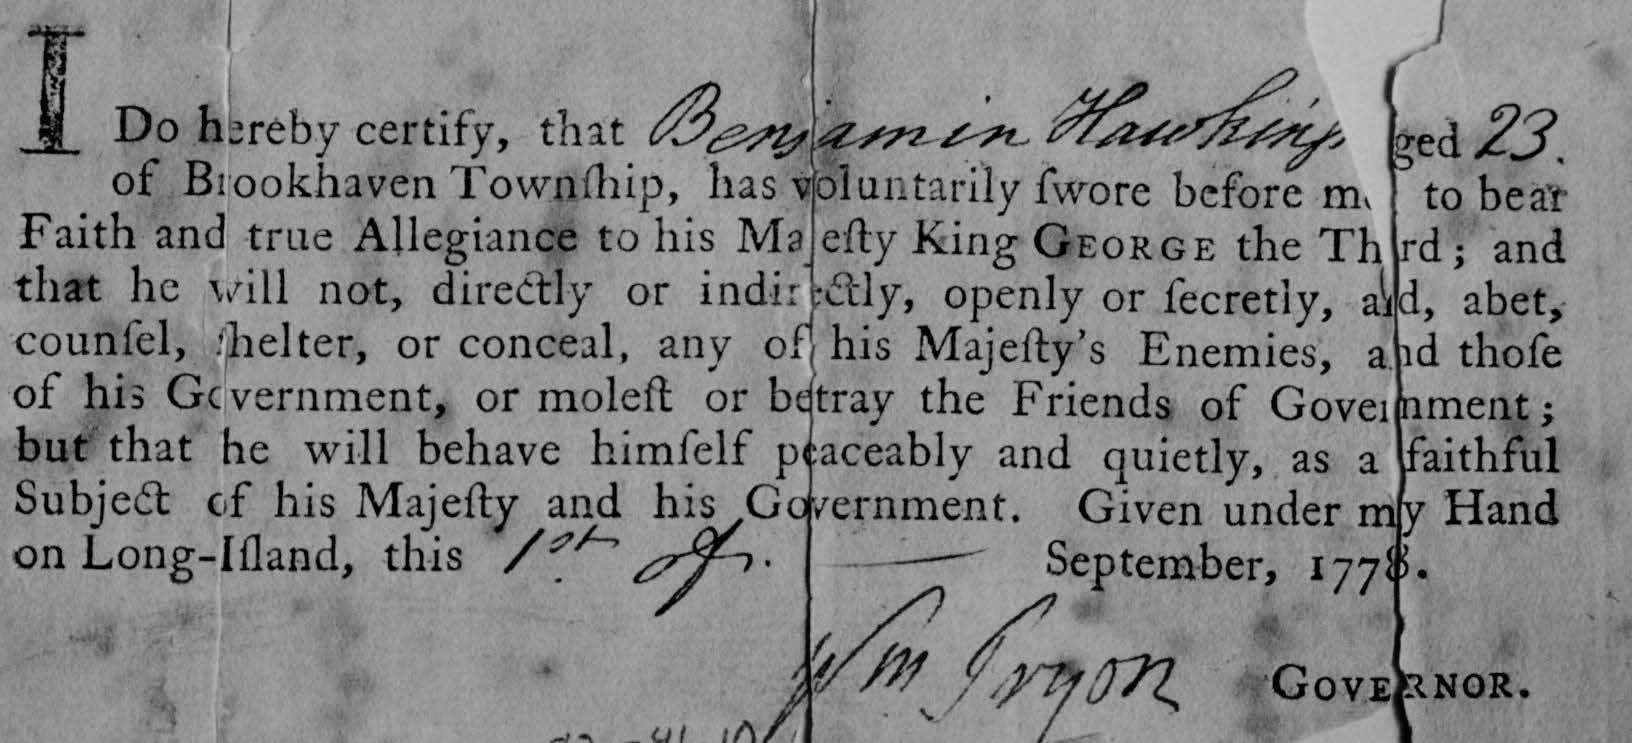 I
Do hereby certify, that Benjamin Hawkins aged 23.
of Brookhaven Townſhip, has voluntarily ſwore before me to bear
Faith and true Allegiance to his Majeſty King GEORGE the Third; and
that he will not, directly or indirectly, openly or ſecretly, aid, abet,
counſel, ſhelter, or conceal, any of his Majeſty's Enemies, and thoſe
of his Government, or moleſt or betray the Friends of Government;
but that he will behave himſelf peaceably and quietly, as a faithful
Subject of his Majeſty and his Government. Given under my Hand
on Long-Iſland, this 1st of. — September, 1778.
Wm Tryon GOVERNOR.